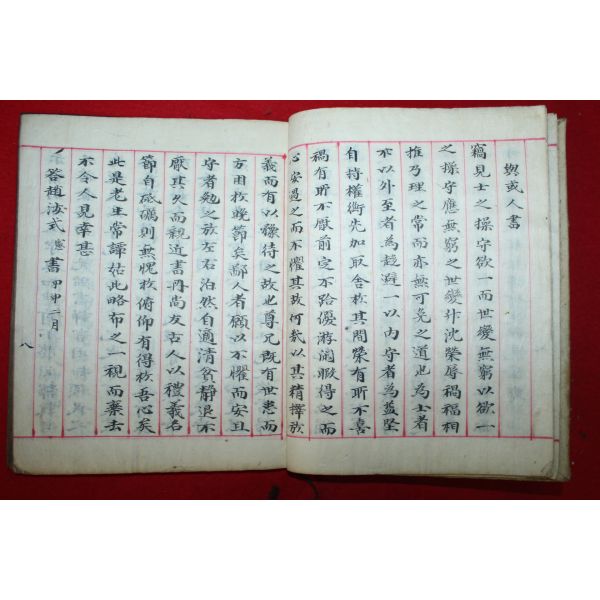 與或人書
竊見士之操守欲一而世變無窮以欲一
之操守應無窮之世變升沈榮辱禍福相
推乃理之常而亦無可免之道也為士者
不以外至者為趍避一以内守者為益堅
自持權衡先加取舍於其間榮有所不喜
禍有所不厭前定不跲優游閒暇得之而
心安遇之而不懼其故何哉以其精擇於
義而有以豫待之故也尊兄旣有世患而
方困於晚節矣鄙人者願以不懼而安且
守者勉之於左右泊然自適清貧静退不
厭其久而親近書冊尚友古人以禮義名
節自砥礪則無愧於俯仰有得於吾心矣
此是老生常譚姑此略布之一視而棄去
不令人見幸甚
答趙汝式 書 甲申二月
八